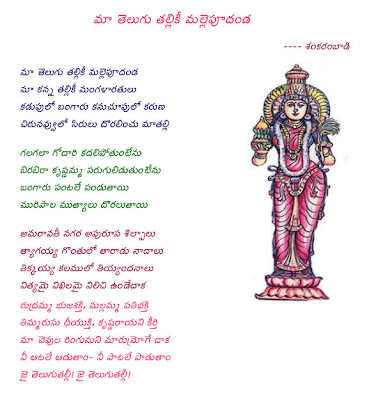 మా తెలుగు తల్లికీ మల్లెపూదండ
---- శంకరంబాడి
మా తెలుగు తల్లికీ మల్లెపూదండ
మా కన్న తల్లికీ మంగళారతులు
కడుపులో బంగారు కనుచూపులో కరుణ
చిరునవ్వులో సిరులు దొరలించు మాతల్లి
గలగలా గోదారి కదలిపోతుంటేను
బిరబిరా కృష్ణమ్మ పరుగులిడుతుంటేను
బంగారు పంటలే పండుతాయి
మురిపాల ముత్యాలు దొరలుతాయి
అమరావతీ నగర అపురూప శిల్పాలు
త్యాగయ్య గొంతులో తారాడు నాదాలు
తిక్కయ్య కలములో తియ్యందనాలు
నిత్యమై నిఖిలమై నిలిచి ఉండేదాక
రుద్రమ్మ భుజశక్తి, మల్లమ్మ పతిభక్తి
తిమ్మరుసు ధీయుక్తి, కృష్ణరాయని కీర్తి
మా చెవుల రింగుమని మారుమ్రోగే దాక
నీ ఆటలే ఆడుతాం- నీ పాటలే పాడుతాం
జై తెలుగుతల్లీ! జై తెలుగుతల్లీ!